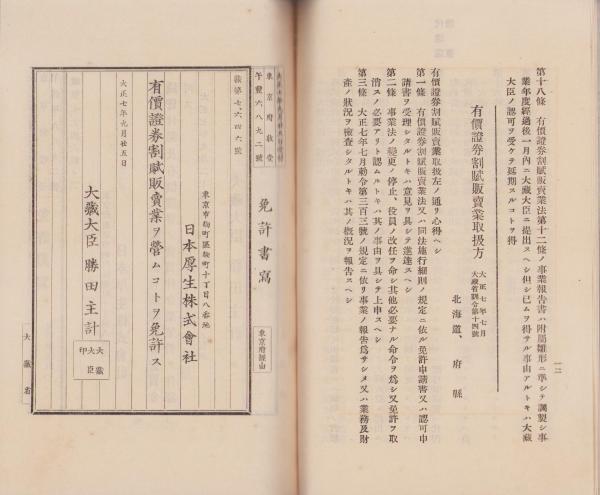 第十八條 有價證券割賦販賣業法第十二條ノ事業報告書ハ附屬雛形ニ準シテ調製シ事
業年度經過後一月內ニ大藏大臣ニ提出スヘシ但シ已ムヲ得サル事由アルトキハ大藏
大臣ノ認可ヲ受ケテ延期スルコトヲ得
有價證券割賦販賣業取扱方
大正七年七月
大藏省訓令第十四號
北海道、府縣
有價證券割賦販賣業取扱左ノ通リ心得ヘシ
第一條 有價證券割賦販賣業法又ハ同法施行細則ノ規定ニ依ル免許申請書又ハ認可申
請書ヲ受理シタルトキハ意見ヲ具シテ進達スヘシ
第二條 事業法ノ變更ノ停止、役員ノ改任ヲ命シ其他必要ナル命令ヲ爲シ又免許ヲ取
消スノ必要アリト認ムルトキハ其ノ事由ヲ具シテ上申スヘシ
第三條 大正七年七月勅令第三百三號ノ規定ニ依リ事業ノ報告ヲ爲サシメ又ハ業務及財
產ノ狀況ヲ檢査シタルトキハ其ノ槪況ヲ報告スヘシ
一二
免許書寫
東京府經由
東京府收受
午農六八九二號
藏第七、六四六號
東京市麹町區麹町十丁目八番地
日本厚生株式會社
有價證券割賦販賣業ヲ營ムコトヲ免許ス
大正七年九月廿五日
大藏大臣 勝田主計
大藏
大臣
印
大藏省